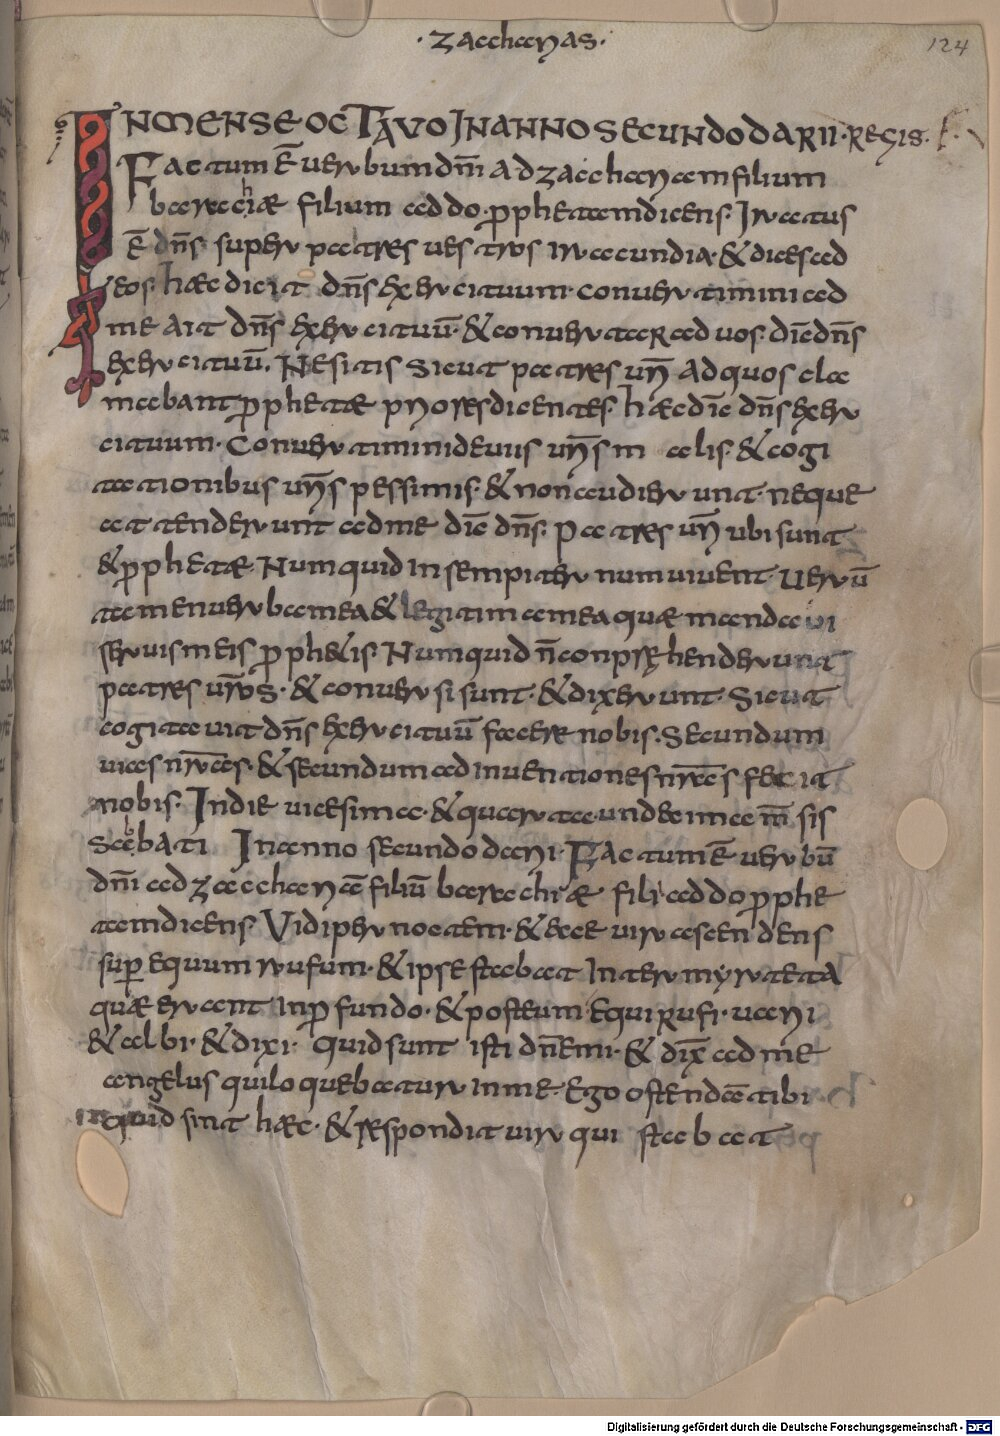 · zacharias ·
124
IN MENSE OCTAVO IN ANNO SECUNDO DARII · REGIS ·
Factum ē verbum dn̄i ad zachariam filium
barachiæ filium addo · p̄phetam dicens · Iratus
ē dn̄s super patres vestros iracundia · & dices ad
eos · hæc dicit dn̄s exercituum · convertimini ad
me ait dn̄s exercituū · & convertar ad vos · dīc dn̄s
exercituū · Ne sitis sicut patres vr̄i ad quos cla
mabant p̄phetæ priores dicentes · hæc dīc dn̄s exer
cituum · Convertimini de viis vr̄is malis · & cogi
tationibus vr̄is pessimis · & non audierunt · neque
attenderunt ad me dīc dn̄s · Patres vr̄i ubi sunt
& p̄phetæ · Numquid in sempiternum vivent · Verū
tamen verba mea & legitima mea quæ mandavi
servis meis p̄phetis · Numquid n̄ conprehenderunt
patres vr̄os · & conversi sunt · & dixerunt · Sicut
cogitavit dn̄s exercituū facere nobis · Secundum
vias nr̄as · & secundum adinventiones nr̄as fecit
nobis · In die vicesima · & quarta · undecima m̄sis
Sabbati In anno secundo darii · Factum ē verbū
dn̄i ad zachariā filiū barachiæ fili addo p̄phe
tam dicens · Vidi per noctem · & ecce vir ascendens
sup̄ equum rufum · & ipse stabat inter myrteta
quæ erant in p̄fundo · & post eum equi rufi · varii
& albi · & dixi · quid sunt isti dn̄e mi · & dix̄ ad me
angelus qui loquebatur in me · Ego ostendā tibi
quid sint hæc · & respondit vir qui stabat
Digitalisierung gefördert durch die Deutsche Forschungsgemeinschaft - DFG